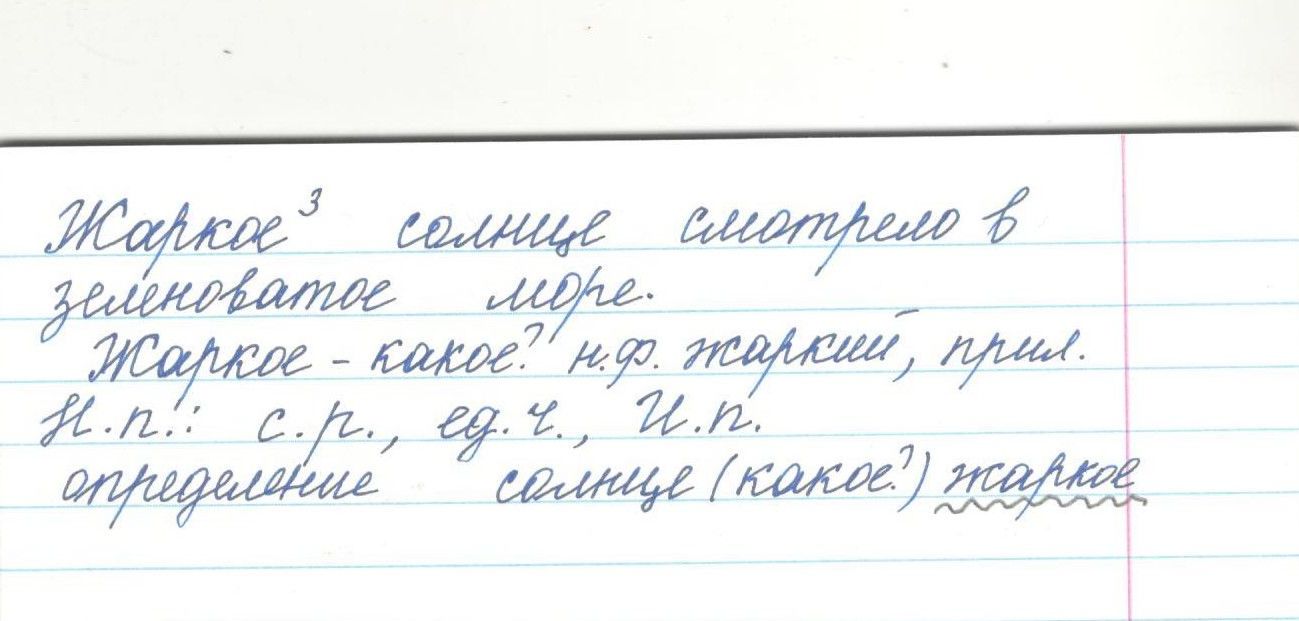 Жаркое³ солнце смотрело в
зеленоватое море.
Жаркое – какое? н.ф. жаркий, прил.
Н.п.: с.р., ед.ч., И.п.
определение солнце (какое?) жаркое